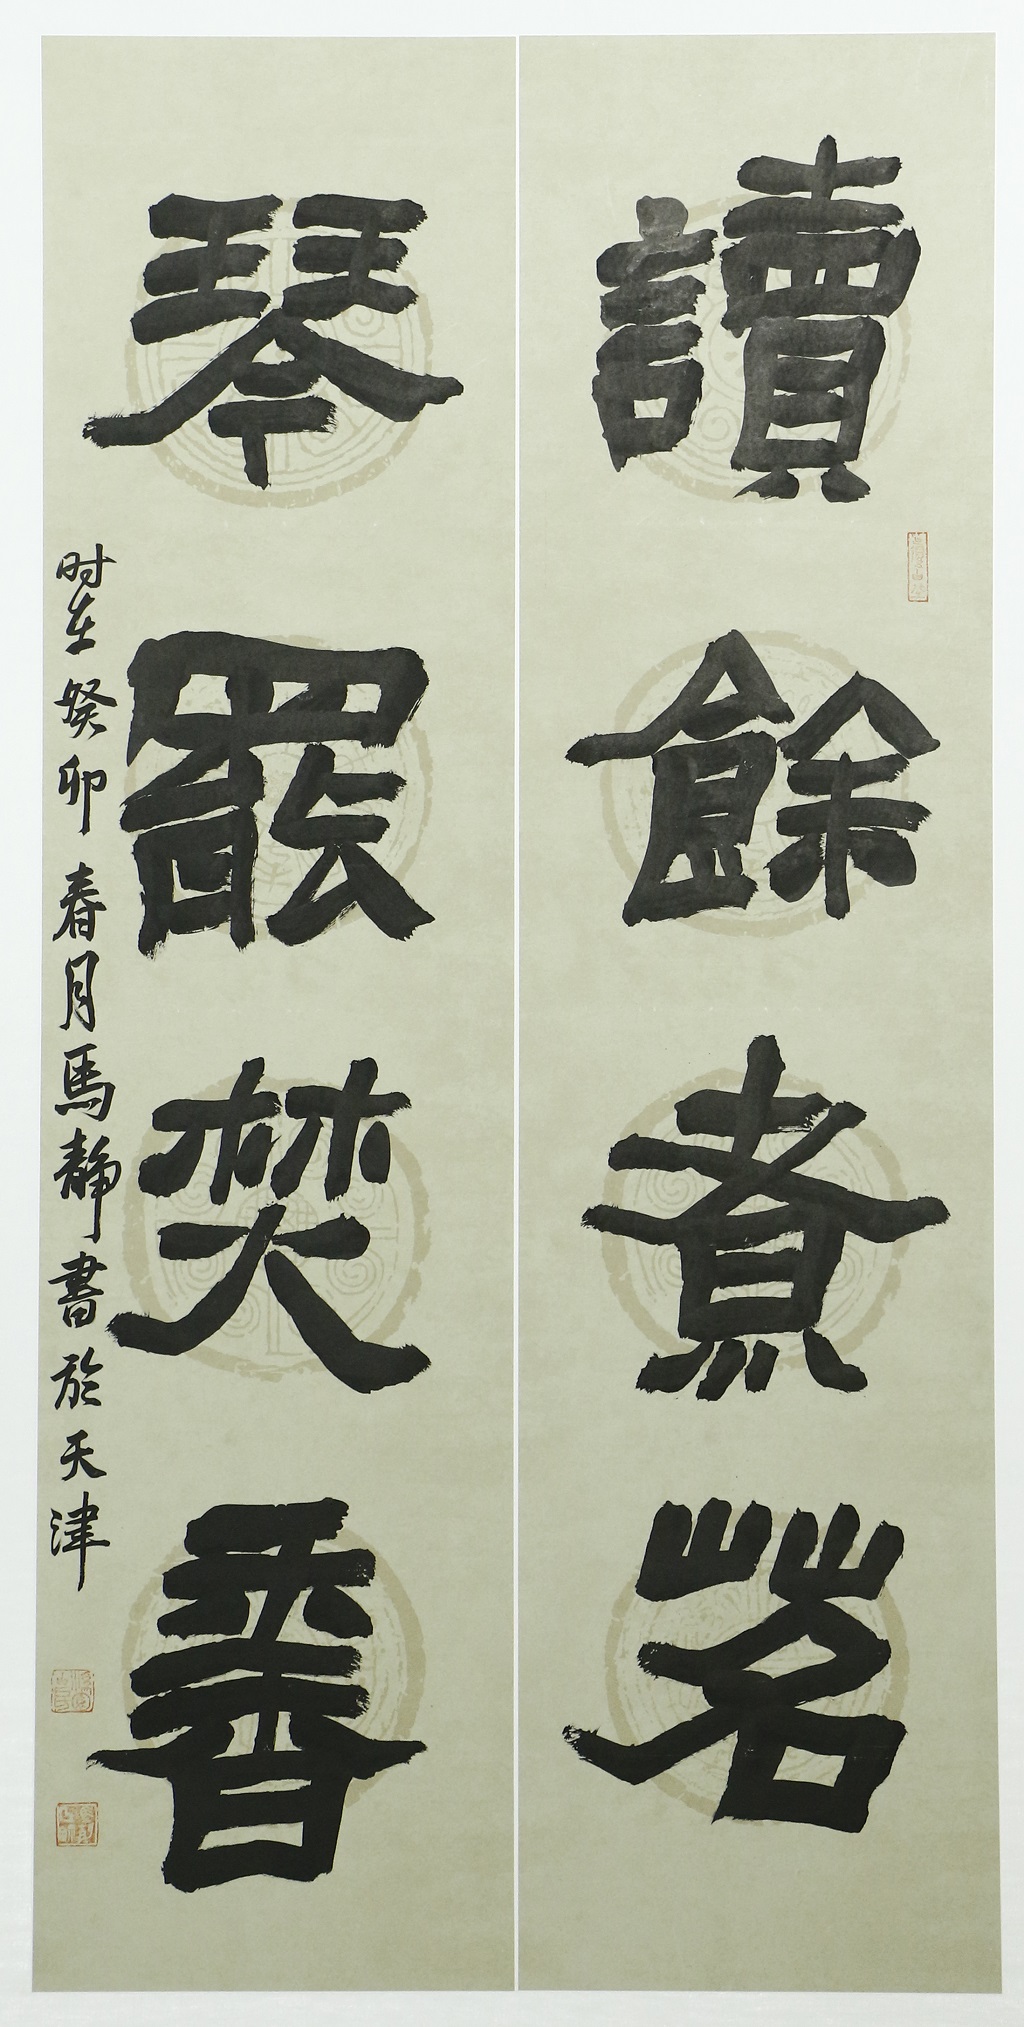 讀餘煮茗
琴罷焚香
时在癸卯春月馬静書於天津